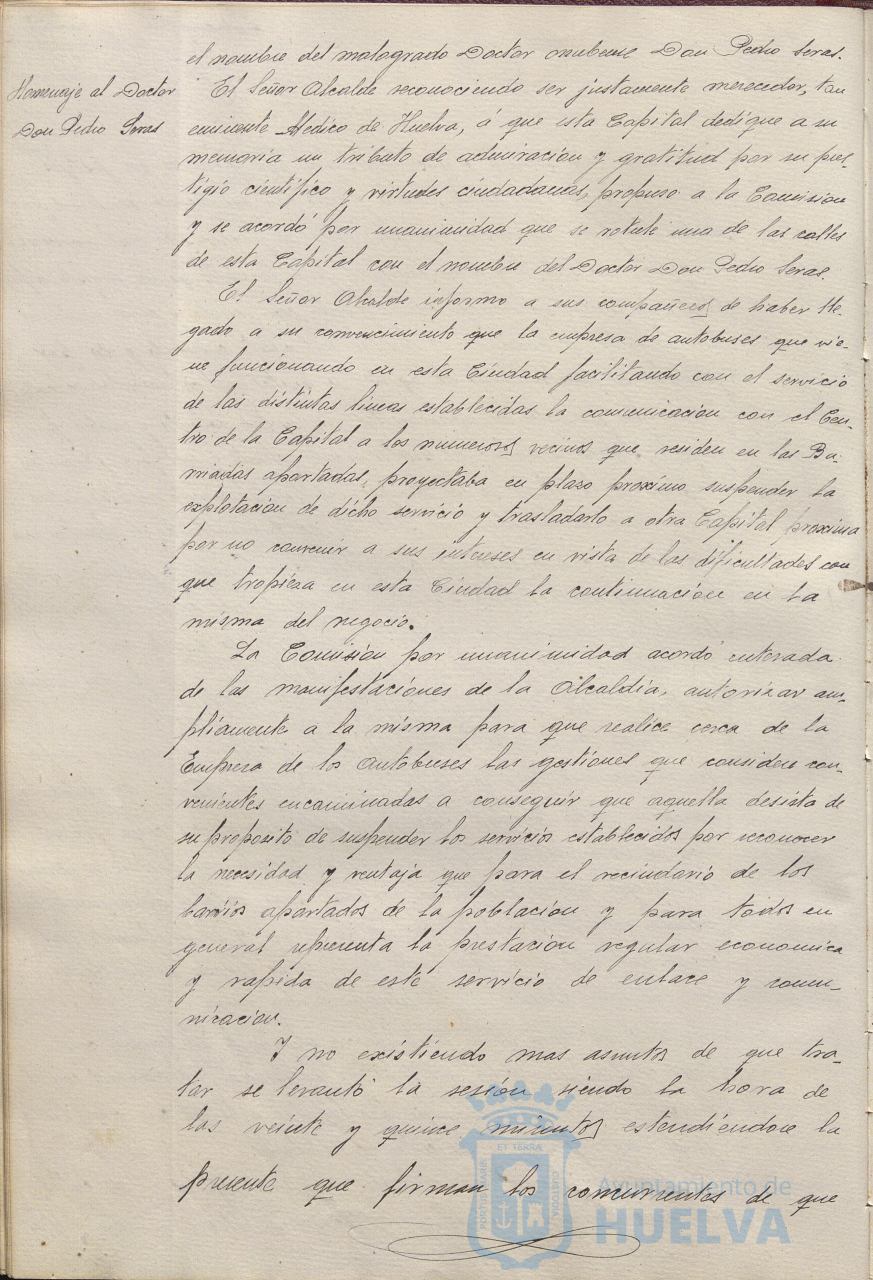 el nombre del malogrado Doctor onubense Don Pedro Seras.
Homenaje al Doctor
Don Pedro Seras
El Señor Alcalde reconociendo ser justamente merecedor, tan
eminente Medico de Huelva, á que esta Capital dedique a su
memoria un tributo de admiracion y gratitud por su pres-
tigio cientifico y virtudes ciudadanas, propuso a la Comision
y se acordó por unanimidad que se rotule una de las calles
de esta Capital con el nombre del Doctor Don Pedro Seras.
El Señor Alcalde informo a sus compañeros de haber lle-
gado a su convencimiento que la empresa de autobuses que vie-
ne funcionando en esta Ciudad facilitando con el servicio
de las distintas lineas establecidas la comunicacion con el Cen-
tro de la Capital a los numerosos vecinos que residen en las Ba-
rriadas apartadas, proyectaba en plazo proximo suspender la
explotacion de dicho servicio y trasladarlo a otra Capital proxima
por no convenir a sus intereses en vista de las dificultades con
que tropieza en esta Ciudad la continuacion en la
misma del negocio.
La Comisión por unanimidad acordó enterada
de las manifestaciones de la Alcaldia, autorizar am-
pliamente a la misma para que realice cerca de la
Empresa de los autobuses las gestiones que considere con-
venientes encaminadas a conseguir que aquella desista de
su proposito de suspender los servicios establecidos por reconocer
la necesidad y ventaja que para el vecindario de los
barrios apartados de la poblacion y para todos en
general representa la prestacion regular economica
y rapida de este servicio de enlace y comu-
nicacion.
Y no existiendo mas asuntos de que tra-
tar se levantó la sesión siendo la hora de
las veinte y quince minutos estendiendose la
presente que firman los concurrentes de que
PORTUS MARIS
ET TERRA
CUSTODIA
Ayuntamiento de
HUELVA